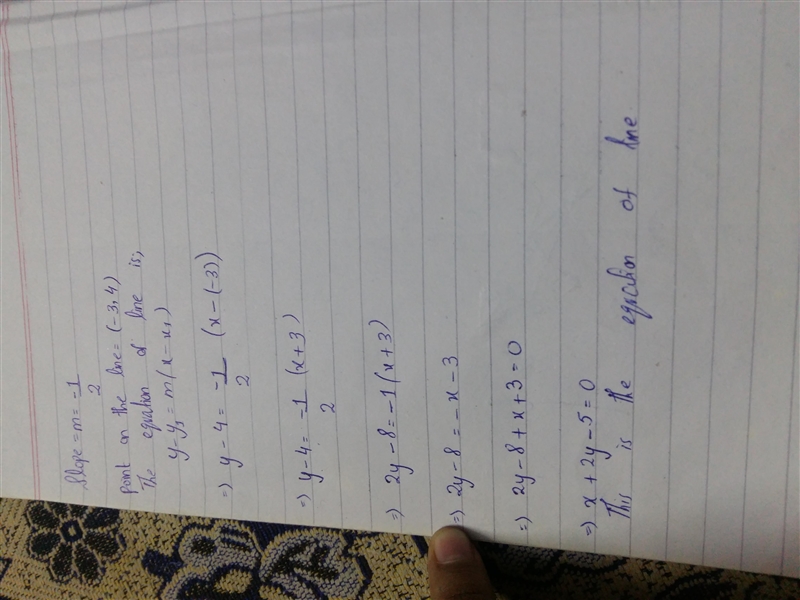 Slope = m = -1/2
point on the line = (-3, 4)
The equation of line is;
y - y1 = m(x - x1)
⇒ y - 4 = -1/2 (x - (-3))
⇒ y - 4 = -1/2 (x + 3)
⇒ 2y - 8 = -1(x + 3)
⇒ 2y - 8 = -x - 3
⇒ 2y - 8 + x + 3 = 0
⇒ x + 2y - 5 = 0
This is the equation of line